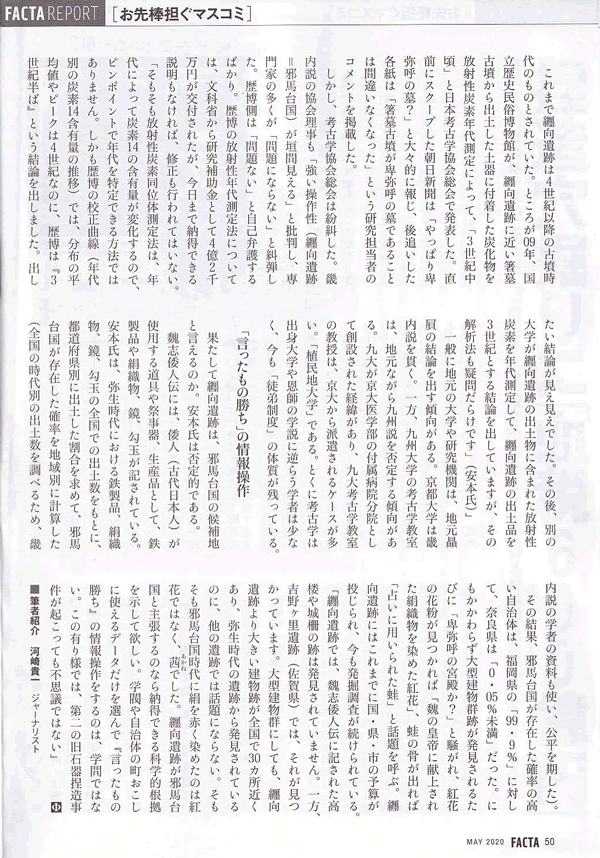 FACTA REPORT [お先棒担ぐマスコミ]
これまで纏向遺跡は4世紀以降の古墳時
代のものとされていた。ところが09年、国
立歴史民俗博物館が、纏向遺跡に近い箸墓
古墳から出土した土器に付着した炭化物を
放射性炭素年代測定によって、「3世紀中
頃」と日本考古学協会総会で発表した。直
前にスクープした朝日新聞は「やっぱり卑
弥呼の墓?」と大々的に報じ、後追いした
各紙は「箸墓古墳が卑弥呼の墓であること
は間違いなくなった」という研究担当者の
コメントを掲載した。
しかし、考古学協会総会は紛糾した。畿
内説の協会理事も「強い操作性(纏向遺跡
=邪馬台国)が垣間見える」と批判し、専
門家の多くが「問題にならない」と糾弾し
た。歴博側は「問題ない」と自己弁護する
ばかり。歴博の放射性年代測定法について
は、文科省から研究補助金として4億2千
万円が交付されたが、今日まで納得できる
説明もなければ、修正も行われてはいない。
「そもそも放射性炭素同位体測定法は、年
代によって炭素14の含有量が変化するので、
ピンポイントで年代を特定できる方法では
ありません。しかも歴博の校正曲線(年代
別の炭素14含有量の推移)では、分布の平
均値やピークは4世紀なのに、歴博は『3
世紀半ば』という結論を出しました。出し
たい結論が見え見えでした。その後、別の
大学が纏向遺跡の出土物に含まれた放射性
炭素を年代測定して、纏向遺跡の出土品を
3世紀とする結論を出していますが、その
解析法も疑問だらけです」(安本氏)
一般に地元の大学や研究機関は、地元贔
屓の結論を出す傾向がある。京都大学は畿
内説を貫く。一方、九州大学の考古学教室
は、地元ながら九州説を否定する傾向があ
る。九大が京大医学部の付属病院分院とし
て創設された経緯があり、九大考古学教室
の教授は、京大から派遣されるケースが多
い。「植民地大学」である。とくに考古学は
出身大学や恩師の学説に逆らう学者は少な
く、今も「徒弟制度」の体質が残っている。
「言ったもの勝ち」の情報操作
果たして纏向遺跡は、邪馬台国の候補地
と言えるのか。安本氏は否定的である。
魏志倭人伝には、倭人(古代日本人)が
使用する道具や祭事器、生産品として、鉄
製品や絹織物、鏡、勾玉が記されている。
安本氏は、弥生時代における鉄製品、絹織
物、鏡、勾玉の全国での出土数をもとに、
都道府県別に出土した割合を求めて、邪馬
台国が存在した確率を地域別に計算した
(全国の時代別の出土数を調べるため、畿
内説の学者の資料も使い、公平を期した)。
その結果、邪馬台国が存在した確率の高
い自治体は、福岡県の「99・9%」に対し
て、奈良県は「0・05%未満」だった。に
もかかわらず大型建物群跡が発見されるた
びに「卑弥呼の宮殿か?」と騒がれ、紅花
の花粉が見つかれば「魏の皇帝に献上され
た絹織物を染めた紅花」、蛙の骨が出れば
「占いに用いられた蛙」と話題を呼ぶ。纏
向遺跡にはこれまでに国・県・市の予算が
投じられ、今も発掘調査が続けられている。
「纏向遺跡では、魏志倭人伝に記された高
楼や城柵の跡は発見されていません。一方、
吉野ヶ里遺跡(佐賀県)では、それが見つ
かっています。大型建物群にしても、纏向
遺跡より大きい建物跡が全国で30カ所近く
あり、弥生時代の遺跡から発見されている
のに、他の遺跡では話題にならない。そも
そも邪馬台国時代に絹を赤く染めたのは紅
花ではなく、茜でした。纏向遺跡が邪馬台
国と主張するのなら納得できる科学的根拠
を示して欲しい。学閥や自治体の町おこし
に使えるデータだけを選んで『言ったもの
勝ち』の情報操作をするのは、学問ではな
い。この有り様では、第二の旧石器捏造事
件が起こっても不思議ではない」
■筆者紹介 河崎貴一 ジャーナリスト
MAY 2020 FACTA 50